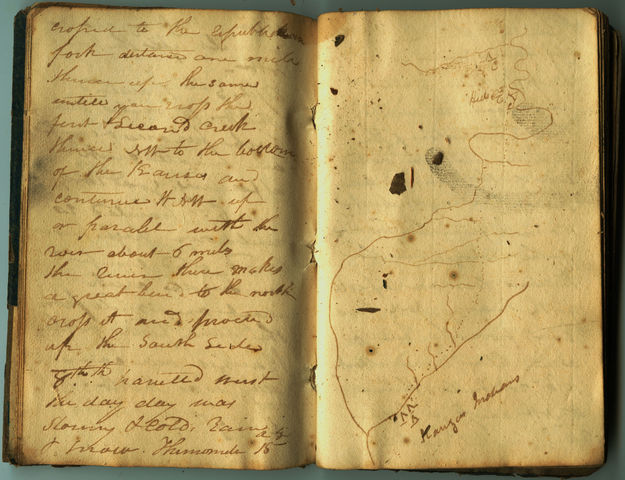 crossed to the republican
fork distance one mile
thence up the same
untill you cross the
first & second creek
thence to the bottom
of the Kansas and
continue up
or paralel with the
river about 6 mils
the river there makes
a great bend to the north
cross it and proceed
up the South Side
8th traveled most
the day day was
& cold, Rain
& Snow. Thermomder 15
Kanzas Indians